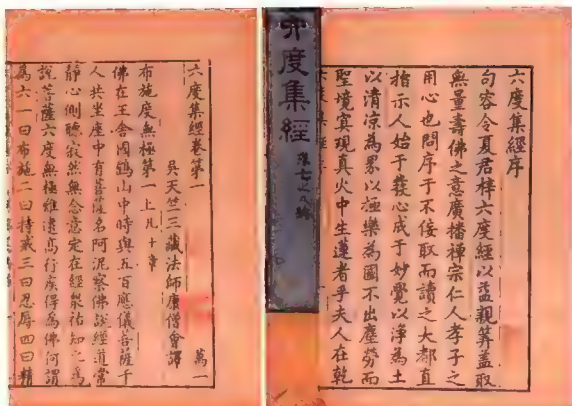 六度集經序
句容令夏君梓六度經以益親筭蓋取
無量壽佛之意廣播禪宗仁人孝子之
用心也問序于不佞取而讀之大都直
指示人始于發心成于妙覺以淨為土
以清涼為界以極樂為國不出塵勞而
聖境冥現真火中生蓮者乎夫人在乾
六度集經
六度集經卷第一
萬一
吳天竺三藏法師康僧會譯
布施度無極第一上凡十章
佛在王舍國鷂山中時與五百應儀菩薩千
人共坐座中有菩薩名阿泥察佛說經道常
靜心側聽寂然無念意定在經衆祐知之為
說菩薩六度無極難逮高行疾得為佛何謂
為六一曰布施二曰持戒三曰忍辱四曰精